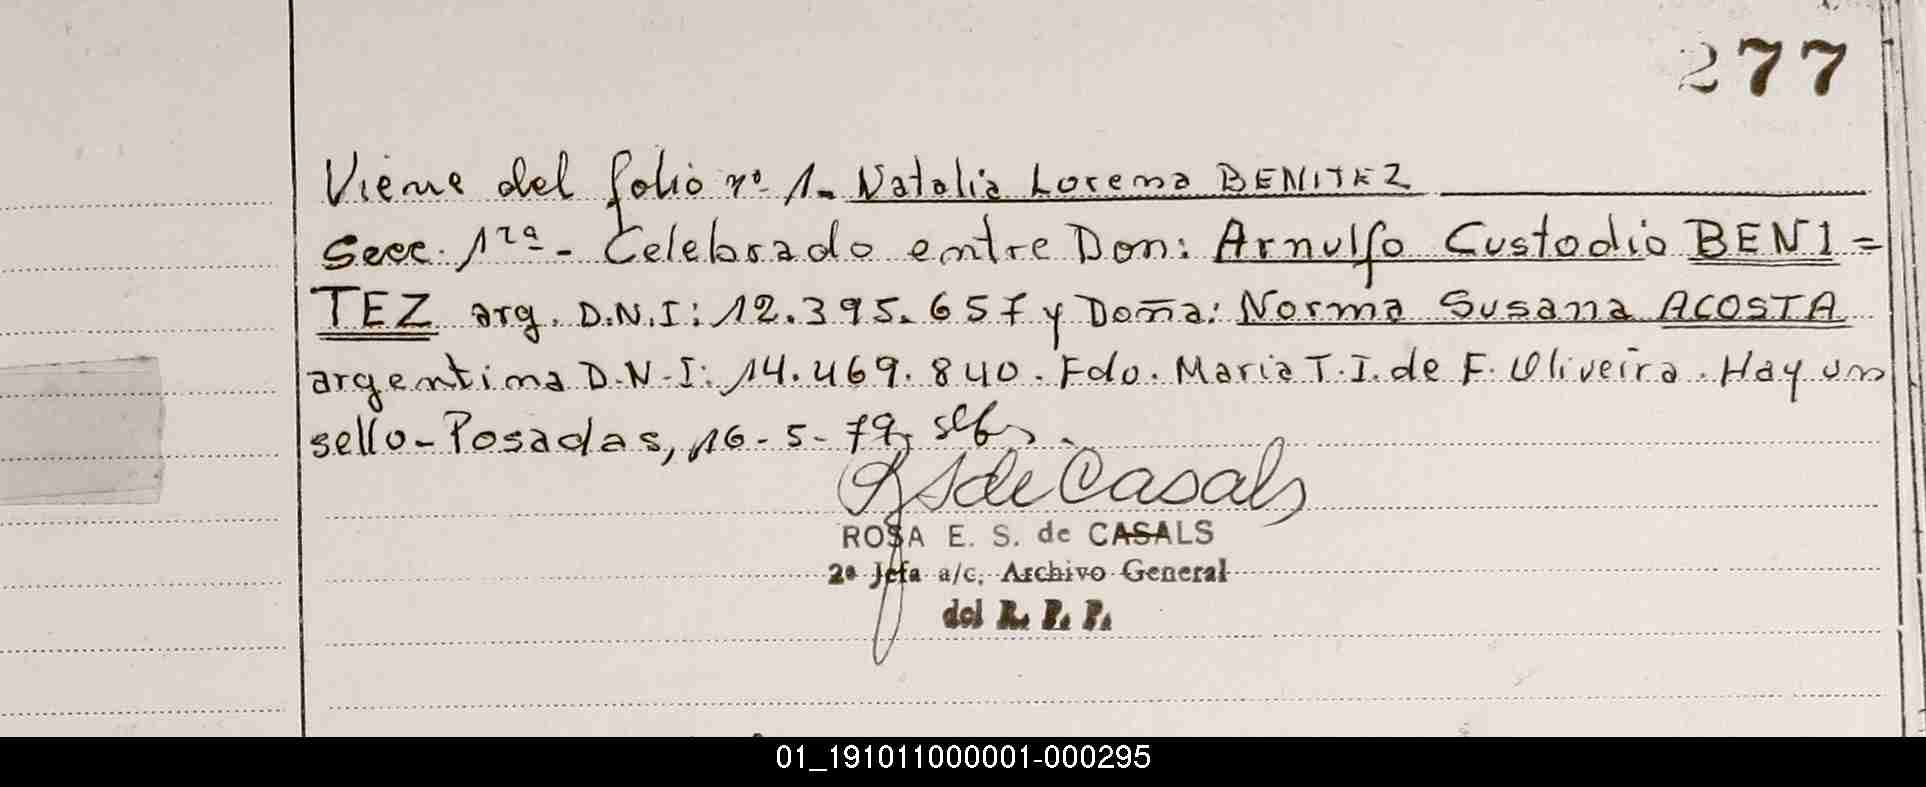 277
Viene del folio nº 1- Natalia Lorena BENITEZ
Secc. 1ra - Celebrado entre Don: Arnulfo Custodio BENI=
TEZ arg. D.N.I: 12.395.657 y Doña: Norma Susana ACOSTA
argentina D.N.I: 14.469.840. Fdo. Maria T.I. de F. Oliveira. Hay un
sello - Posadas, 16-5-79,
de Casals
ROSA E. S. de CASALS
2ª Jefa a/c. Archivo General
del R. P. P.
01_191011000001-000295